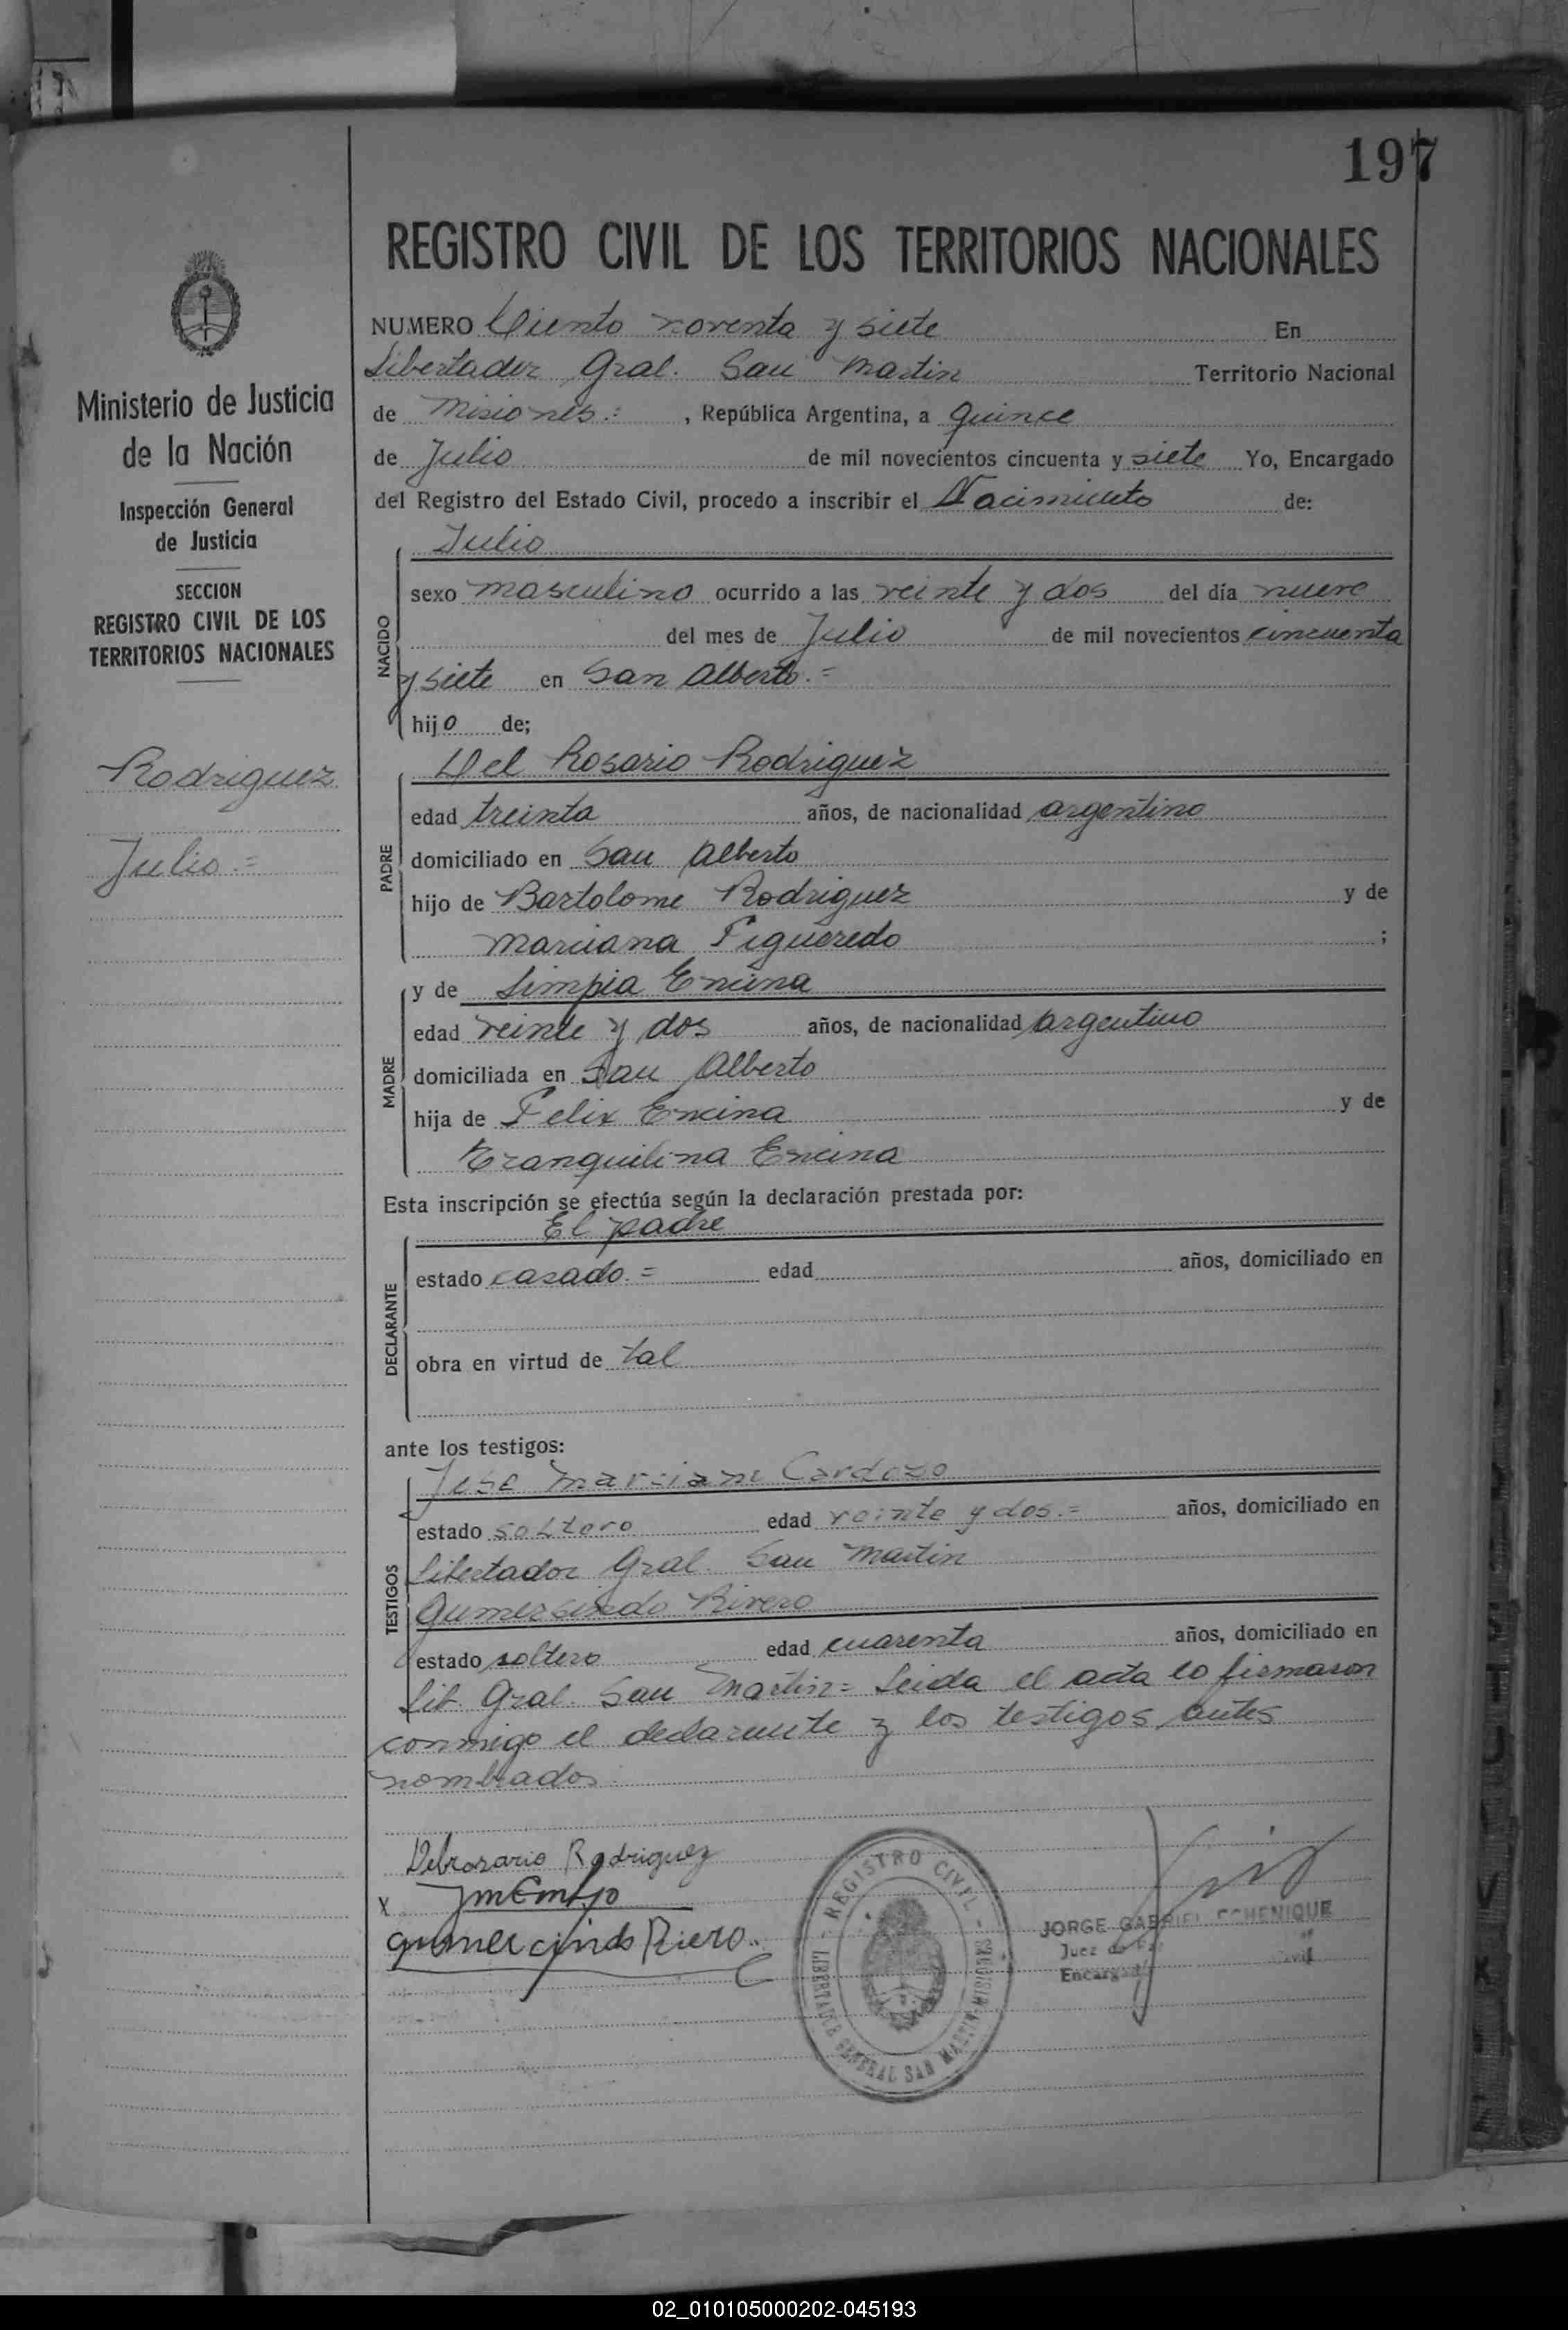 197
REGISTRO CIVIL DE LOS TERRITORIOS NACIONALES
Ministerio de Justicia
de la Nación
Inspección General
de Justicia
SECCION
REGISTRO CIVIL DE LOS
TERRITORIOS NACIONALES
Rodriguez
Julio.=
NUMERO Ciento noventa y siete En
Libertador Gral. San Martin Territorio Nacional
de Misiones.= , República Argentina, a quince
de Julio de mil novecientos cincuenta y siete Yo, Encargado
del Registro del Estado Civil, procedo a inscribir el Nacimiento de:
NACIDO
Julio
sexo masculino ocurrido a las veinte y dos del día nueve
del mes de Julio de mil novecientos cincuenta
y siete en San Alberto.=
hijo de;
PADRE
Del Rosario Rodriguez
edad treinta años, de nacionalidad argentino
domiciliado en San Alberto
hijo de Bartolome Rodriguez y de
Marciana Figueredo ;
MADRE
y de Limpia Encina
edad veinte y dos años, de nacionalidad argentino
domiciliada en San Alberto
hija de Felix Encina y de
Tranquilina Encina
Esta inscripción se efectúa según la declaración prestada por:
DECLARANTE
El padre
estado casado.= edad años, domiciliado en
obra en virtud de tal
ante los testigos:
TESTIGOS
Jose Marciano Cardozo
estado soltero edad veinte y dos.= años, domiciliado en
Libertador Gral. San Martin
Gumercindo Rivero
estado soltero edad cuarenta años, domiciliado en
Lib. Gral. San Martin= Leida el acta lo firmaron
conmigo el declarante y los testigos antes
nombrados.
Delrosario Rodriguez
x
gumercindo Riero..
REGISTRO CIVIL
LIBERTADOR GENERAL SAN MARTIN
MISIONES
JORGE GABRIEL ECHENIQUE
Juez de
Encargado Civil
02_010105000202-045193